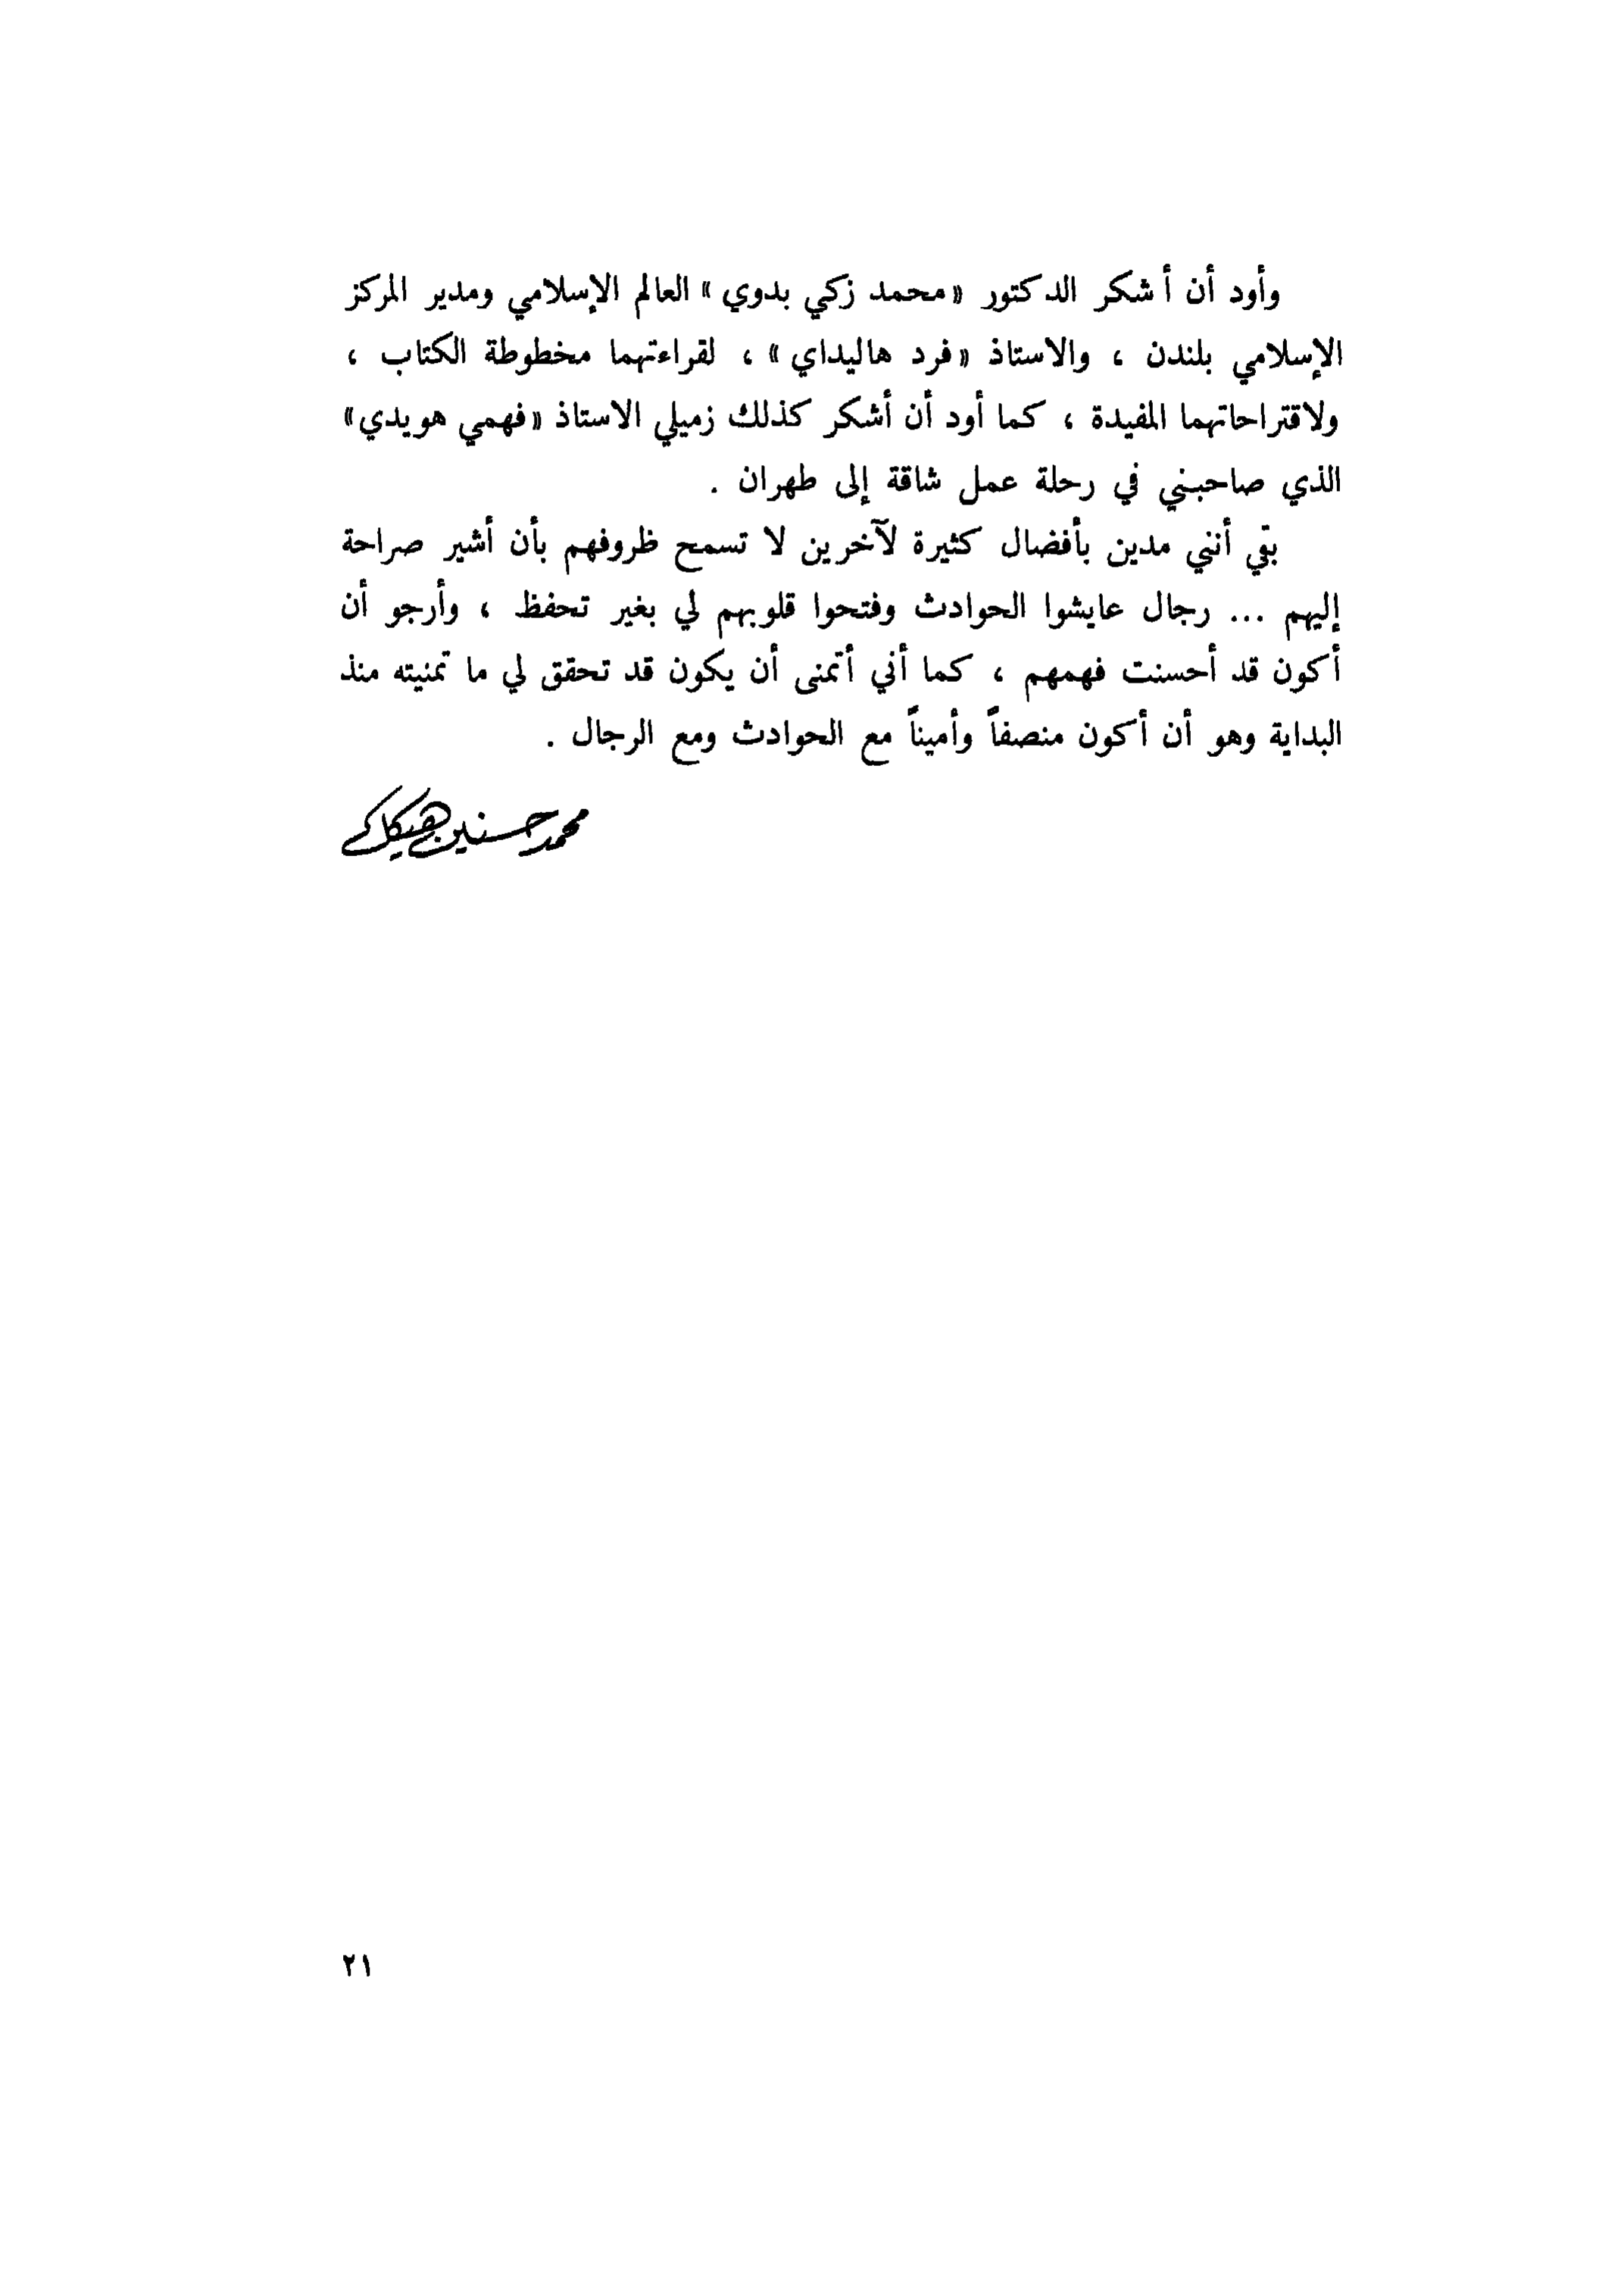 وأود أن أشكر الدكتور «محمد زكي بدوي» العالم الإسلامي ومدير المركز
الإسلامي بلندن ، والاستاذ «فرد هاليداي» ، لقراءتهما مخطوطة الكتاب ،
ولاقتراحاتهما المفيدة ، كما أود أن أشكر كذلك زميلي الاستاذ «فهمي هويدي»
الذي صاحبني في رحلة عمل شاقة إلى طهران .
بقي أنني مدين بأفضال كثيرة لآخرين لا تسمح ظروفهم بأن أشير صراحة
إليهم ... رجال عايشوا الحوادث وفتحوا قلوبهم لي بغير تحفظ ، وأرجو أن
أكون قد أحسنت فهمهم ، كما أني أتمنى أن يكون قد تحقق لي ما تمنيته منذ
البداية وهو أن أكون منصفاً وأميناً مع الحوادث ومع الرجال .
محمد حسنين هيكل
٢١